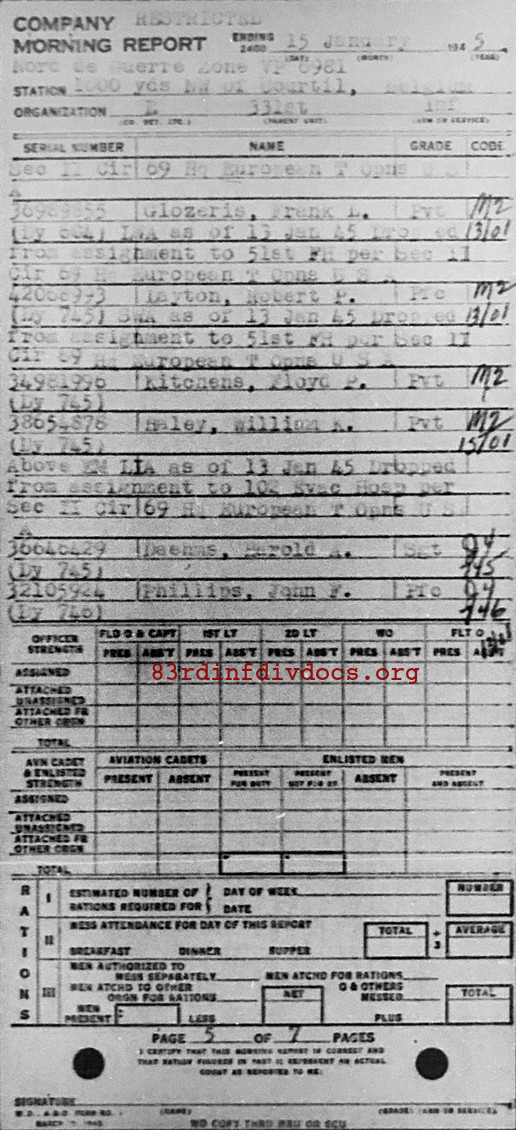 COMPANY RESTRICTED
MORNING REPORT ENDING 2400 15 January 194 5
(DAY) (MONTH) (YEAR)
Nord de Guerre Zone VP 6981
STATION 1000 yds NW of Courtil, Belgium
ORGANIZATION L 331st Inf
(CO. DET. ETC.) (PARENT UNIT) (ARM OR SERVICE)
SERIAL NUMBER NAME GRADE CODE
Sec II Cir 69 Hq European T Opns U S
A
36989855 Glozeris, Frank L. Pvt M2
(Dy 604) LWA as of 13 Jan 45 Dropped 13/01
from assignment to 51st FH per Sec II
Cir 69 Hq European T Opns U S A
Layton, Robert P. Pfc M2
(Dy 745) SWA as of 13 Jan 45 Dropped 13/01
from assignment to 51st FH per Sec II
Cir 69 Hq European T Opns U S A
34981996 Kitchens, Floyd P. Pvt M2
(Dy 745)
38654878 Haley, William K. Pvt M2
(Dy 745) 15/01
Above EM LIA as of 13 Jan 45 Dropped
from assignment to 102 Evac Hosp per
Sec II Cir 69 Hq European T Opns U S
A
36646429 Daehms, Harold A. Sgt
(Dy 745) 745
32105924 Phillips, John F. Pfc
(Dy 746) 746
OFFICER STRENGTH FLD O & CAPT 1ST LT 2D LT WO FLT O
PRES ABS'T PRES ABS'T PRES ABS'T PRES ABS'T PRES
ASSIGNED
83rdinfdivdocs.org
ATTACHED UNASSIGNED
ATTACHED FR OTHER ORGN
TOTAL
AVN CADET & ENLISTED STRENGTH AVIATION CADETS ENLISTED MEN
PRESENT ABSENT PRESENT FOR DUTY PRESENT NOT FOR DY ABSENT PRESENT AND ABSENT
ASSIGNED
ATTACHED UNASSIGNED
ATTACHED FR OTHER ORGN
TOTAL
RATIONS
I ESTIMATED NUMBER OF RATIONS REQUIRED FOR DAY OF WEEK DATE NUMBER
II MESS ATTENDANCE FOR DAY OF THIS REPORT TOTAL ÷ 3 AVERAGE
BREAKFAST DINNER SUPPER
III MEN AUTHORIZED TO MESS SEPARATELY MEN ATCHD FOR RATIONS
MEN ATCHD TO OTHER ORGN FOR RATIONS NET O & OTHERS MESSED TOTAL
MEN PRESENT LESS PLUS
PAGE 5 OF 7 PAGES
I CERTIFY THAT THIS MORNING REPORT IS CORRECT AND
THAT RATION FIGURES IN PART III REPRESENT AN ACTUAL
COUNT AS REPORTED TO ME:
SIGNATURE
W.D., A.G.O. FORM NO. 1 (NAME) (GRADE) (ARM OR SERVICE)
NO COPY THRU MRU OR SCU